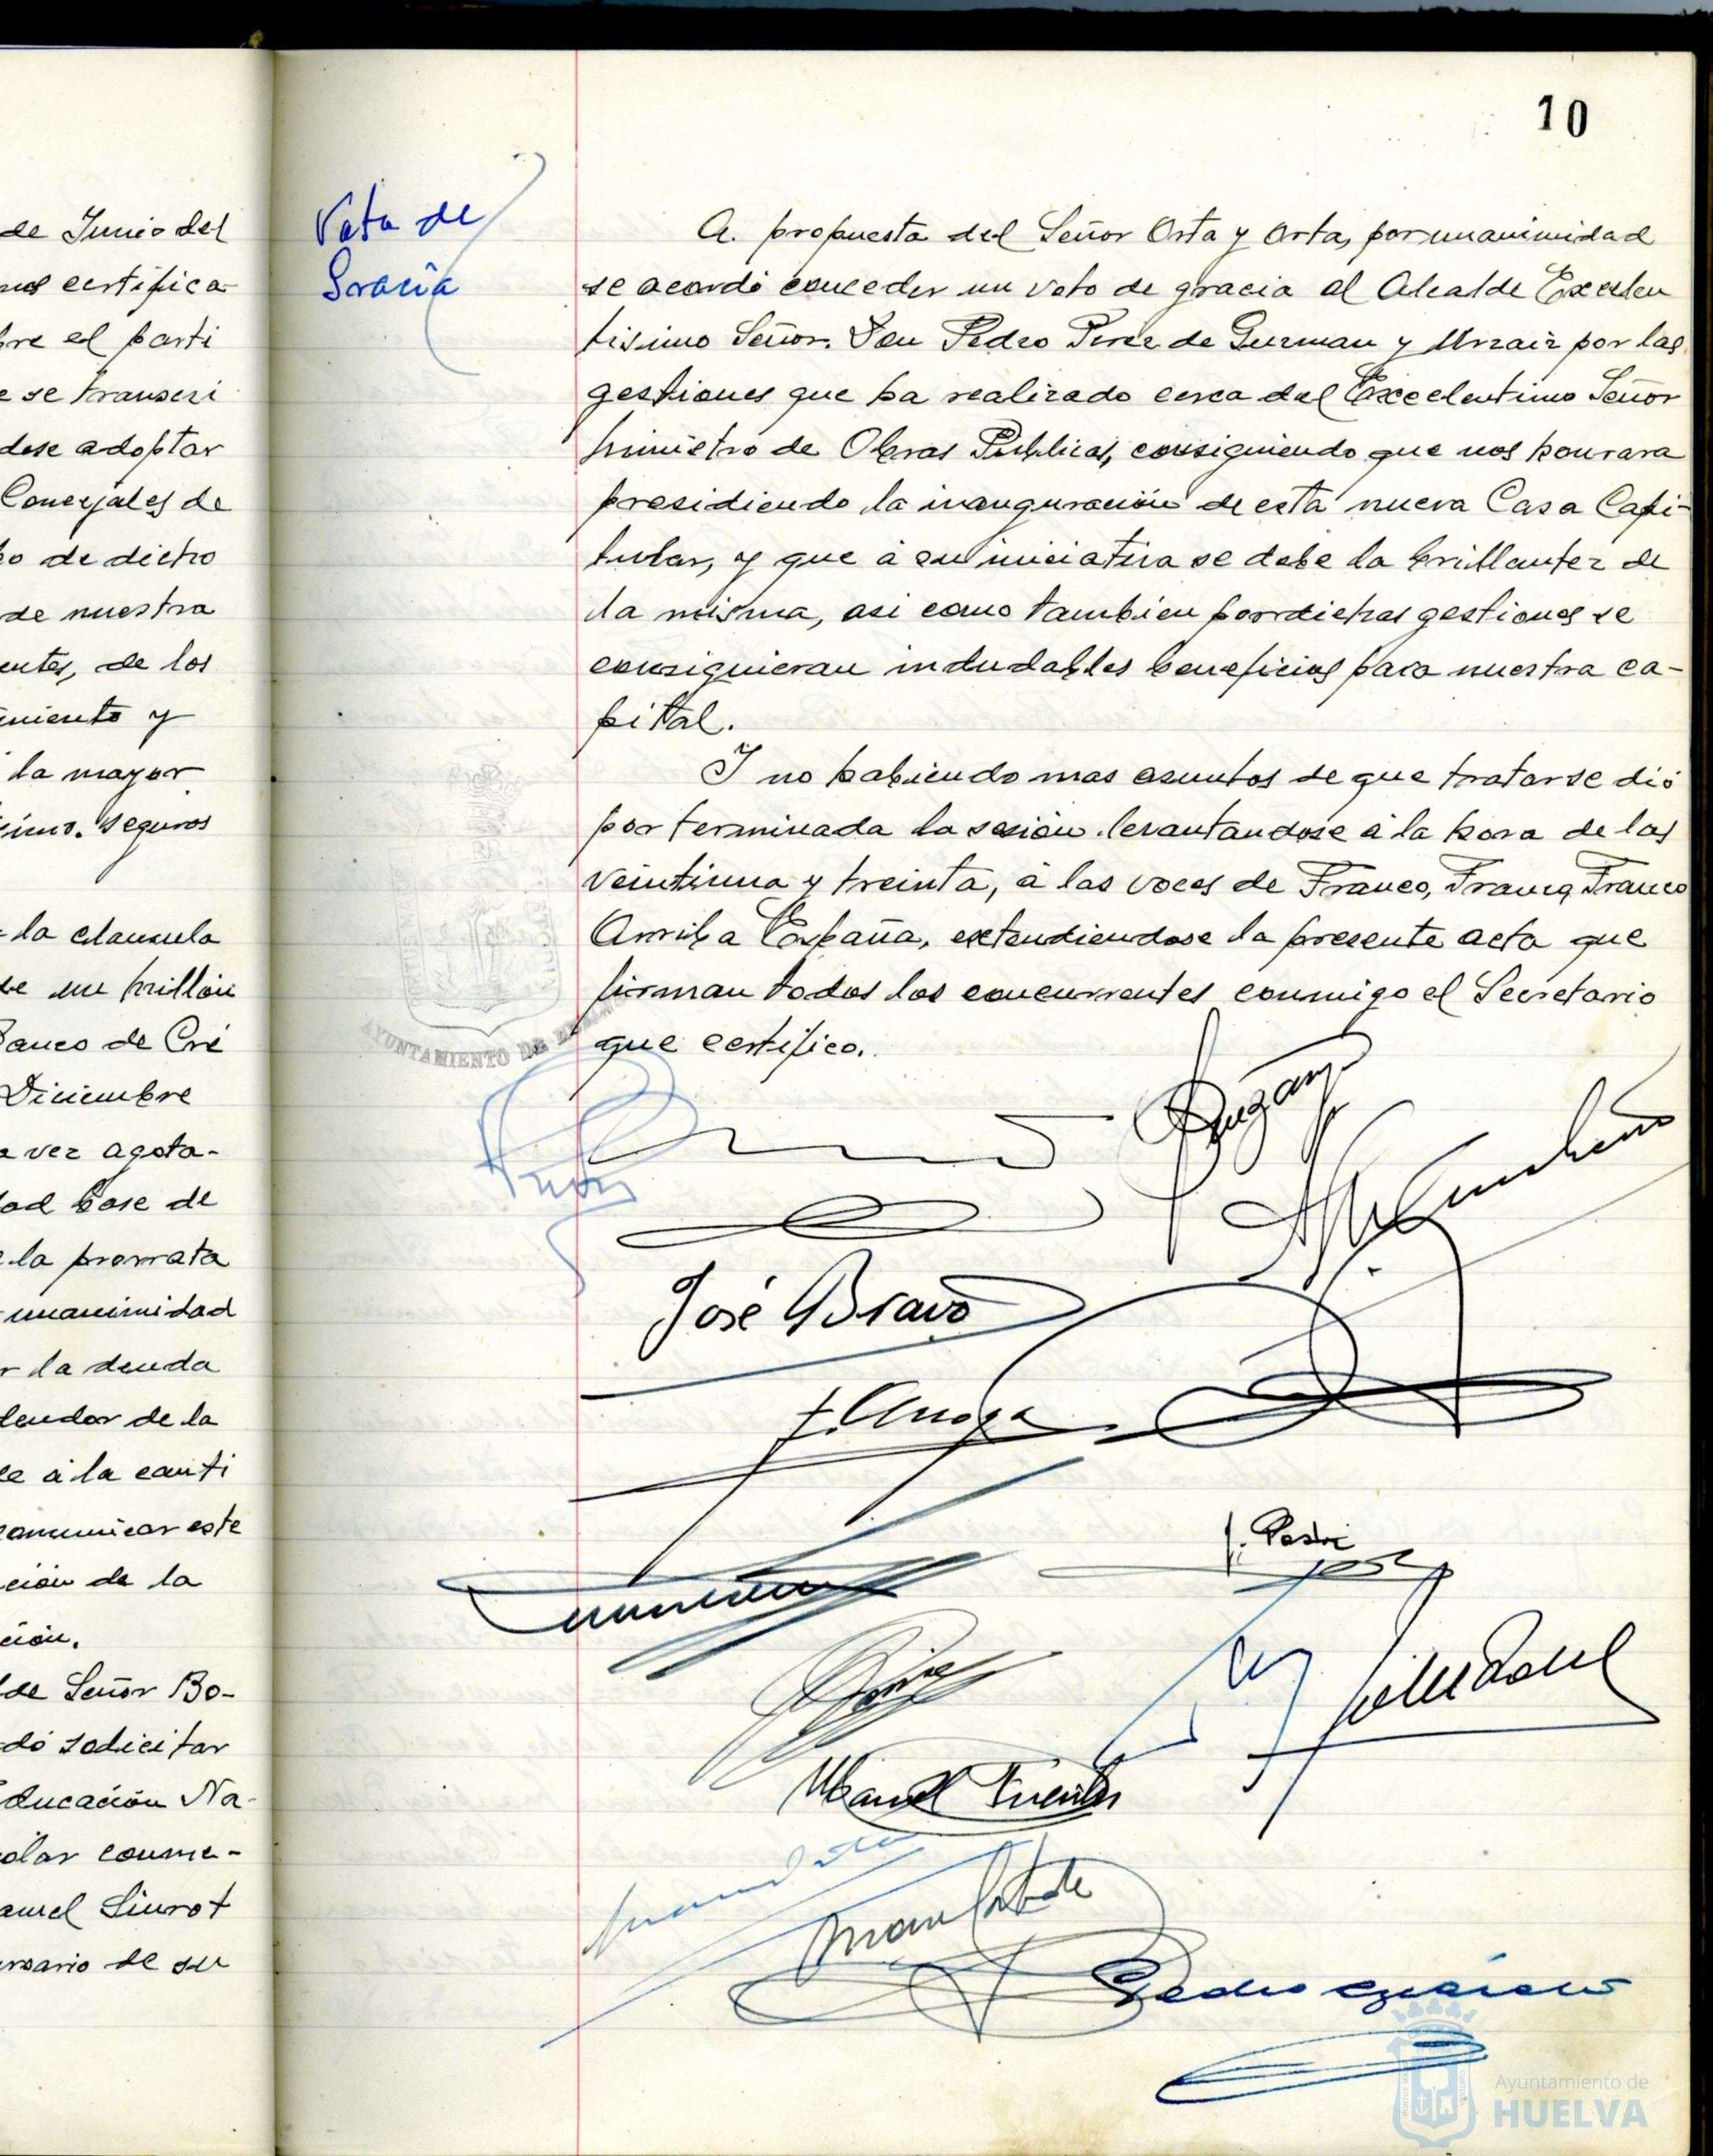 10
de Junio del
certifica-
bre el parti
e se transcri
dose adoptar
Concejales de
bo de dicho
de nuestra
entes, de los
imiento y
la mayor
simo. Seguros
la clausula
de un millón
Banco de Cré
Diciembre
a vez agota-
ad base de
e la prorrata
unanimidad
r la deuda
de la
ce á la canti
comunicar este
ción de la
ción.
de Señor Bo-
dó solicitar
ducación Na-
olar conme-
anuel Siurot
ersario de su
Voto de
Gracia
A. propuesta del Señor Orta y Orta, por unanimidad
se acordó conceder un voto de gracia al Alcalde Excelen
tisimo Señor. Don Pedro Perez de Guzman y Urzaiz por las
gestiones que ha realizado cerca del Excelentimo Señor
Ministro de Obras Publicas, consiguiendo que nos honrara
presidiendo la inauguración de esta nueva Casa Capi-
tular, y que á su iniciativa se debe la brillantez de
la misma, asi como tambien por dichas gestiones se
consiguieran indudables beneficios para nuestra ca-
pital.
Y no habiendo mas asuntos de que tratar se dió
por terminada la sesión levantandose á la hora de las
veintiuna y treinta, á las voces de Franco, Franco, Franco
Arriba España, extendiendose la presente acta que
firman todos los concurrentes conmigo el Secretario
que certifico.
AYUNTAMIENTO DE HUELVA
José Bravo
Manuel Fuentes
Pedro
Ayuntamiento de
HUELVA